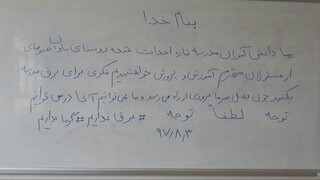 بنام خدا
ما دانش آموزان مدرسه تازه احداث شده روستای
از مسئولان محترم آموزش و پرورش خواهشمندیم فکری برای برق مدرسه
بکنید چون فصل سرما بزودی از راه می رسد و ما نمی توانیم آنجا درس بخوانیم
توجه لطفاً توجه # برق نداریم # گرما نداریم
۹۷/۸/۳